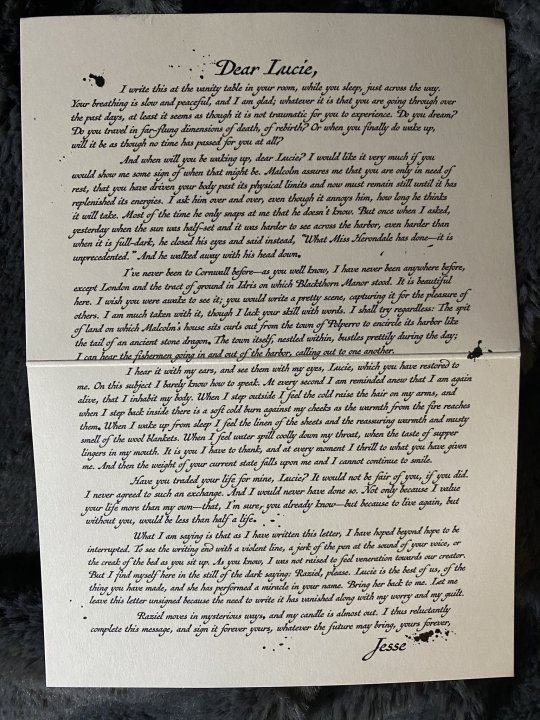 Dear Lucie,
I write this at the vanity table in your room, while you sleep, just across the way.
Your breathing is slow and peaceful, and I am glad; whatever it is that you are going through over
the past days, at least it seems as though it is not traumatic for you to experience. Do you dream?
Do you travel in far-flung dimensions of death, of rebirth? Or when you finally do wake up,
will it be as though no time has passed for you at all?
And when will you be waking up, dear Lucie? I would like it very much if you
would show me some sign of when that might be. Malcolm assures me that you are only in need of
rest, that you have driven your body past its physical limits and now must remain still until it has
replenished its energies. I ask him over and over, even though it annoys him, how long he thinks
it will take. Most of the time he only snaps at me that he doesn't know. But once when I asked,
yesterday when the sun was half-set and it was harder to see across the harbor, even harder than
when it is full-dark, he closed his eyes and said instead, "What Miss Herondale has done—it is
unprecedented." And he walked away with his head down.
I've never been to Cornwall before—as you well know, I have never been anywhere before,
except London and the tract of ground in Idris on which Blackthorn Manor stood. It is beautiful
here. I wish you were awake to see it; you would write a pretty scene, capturing it for the pleasure of
others. I am much taken with it, though I lack your skill with words. I shall try regardless: The spit
of land on which Malcolm's house sits curls out from the town of Polperro to encircle its harbor like
the tail of an ancient stone dragon. The town itself, nestled within, bustles prettily during the day;
I can hear the fishermen going in and out of the harbor, calling out to one another.
I hear it with my ears, and see them with my eyes, Lucie, which you have restored to
me. On this subject I barely know how to speak. At every second I am reminded anew that I am again
alive, that I inhabit my body. When I step outside I feel the cold raise the hair on my arms, and
when I step back inside there is a soft cold burn against my cheeks as the warmth from the fire reaches
them. When I wake up from sleep I feel the linen of the sheets and the reassuring warmth and musty
smell of the wool blankets. When I feel water spill coolly down my throat, when the taste of supper
lingers in my mouth. It is you I have to thank, and at every moment I thrill to what you have given
me. And then the weight of your current state falls upon me and I cannot continue to smile.
Have you traded your life for mine, Lucie? It would not be fair of you, if you did.
I never agreed to such an exchange. And I would never have done so. Not only because I value
your life more than my own—that, I'm sure, you already know—but because to live again, but
without you, would be less than half a life.
What I am saying is that as I have written this letter, I have hoped beyond hope to be
interrupted. To see the writing end with a violent line, a jerk of the pen at the sound of your voice, or
the creak of the bed as you sit up. As you know, I was not raised to feel veneration towards our creator.
But I find myself here in the still of the dark saying: Raziel, please. Lucie is the best of us, of the
thing you have made, and she has performed a miracle in your name. Bring her back to me. Let me
leave this letter unsigned because the need to write it has vanished along with my worry and my guilt.
Raziel moves in mysterious ways, and my candle is almost out. I thus reluctantly
complete this message, and sign it forever yours, whatever the future may bring, yours forever,
Jesse